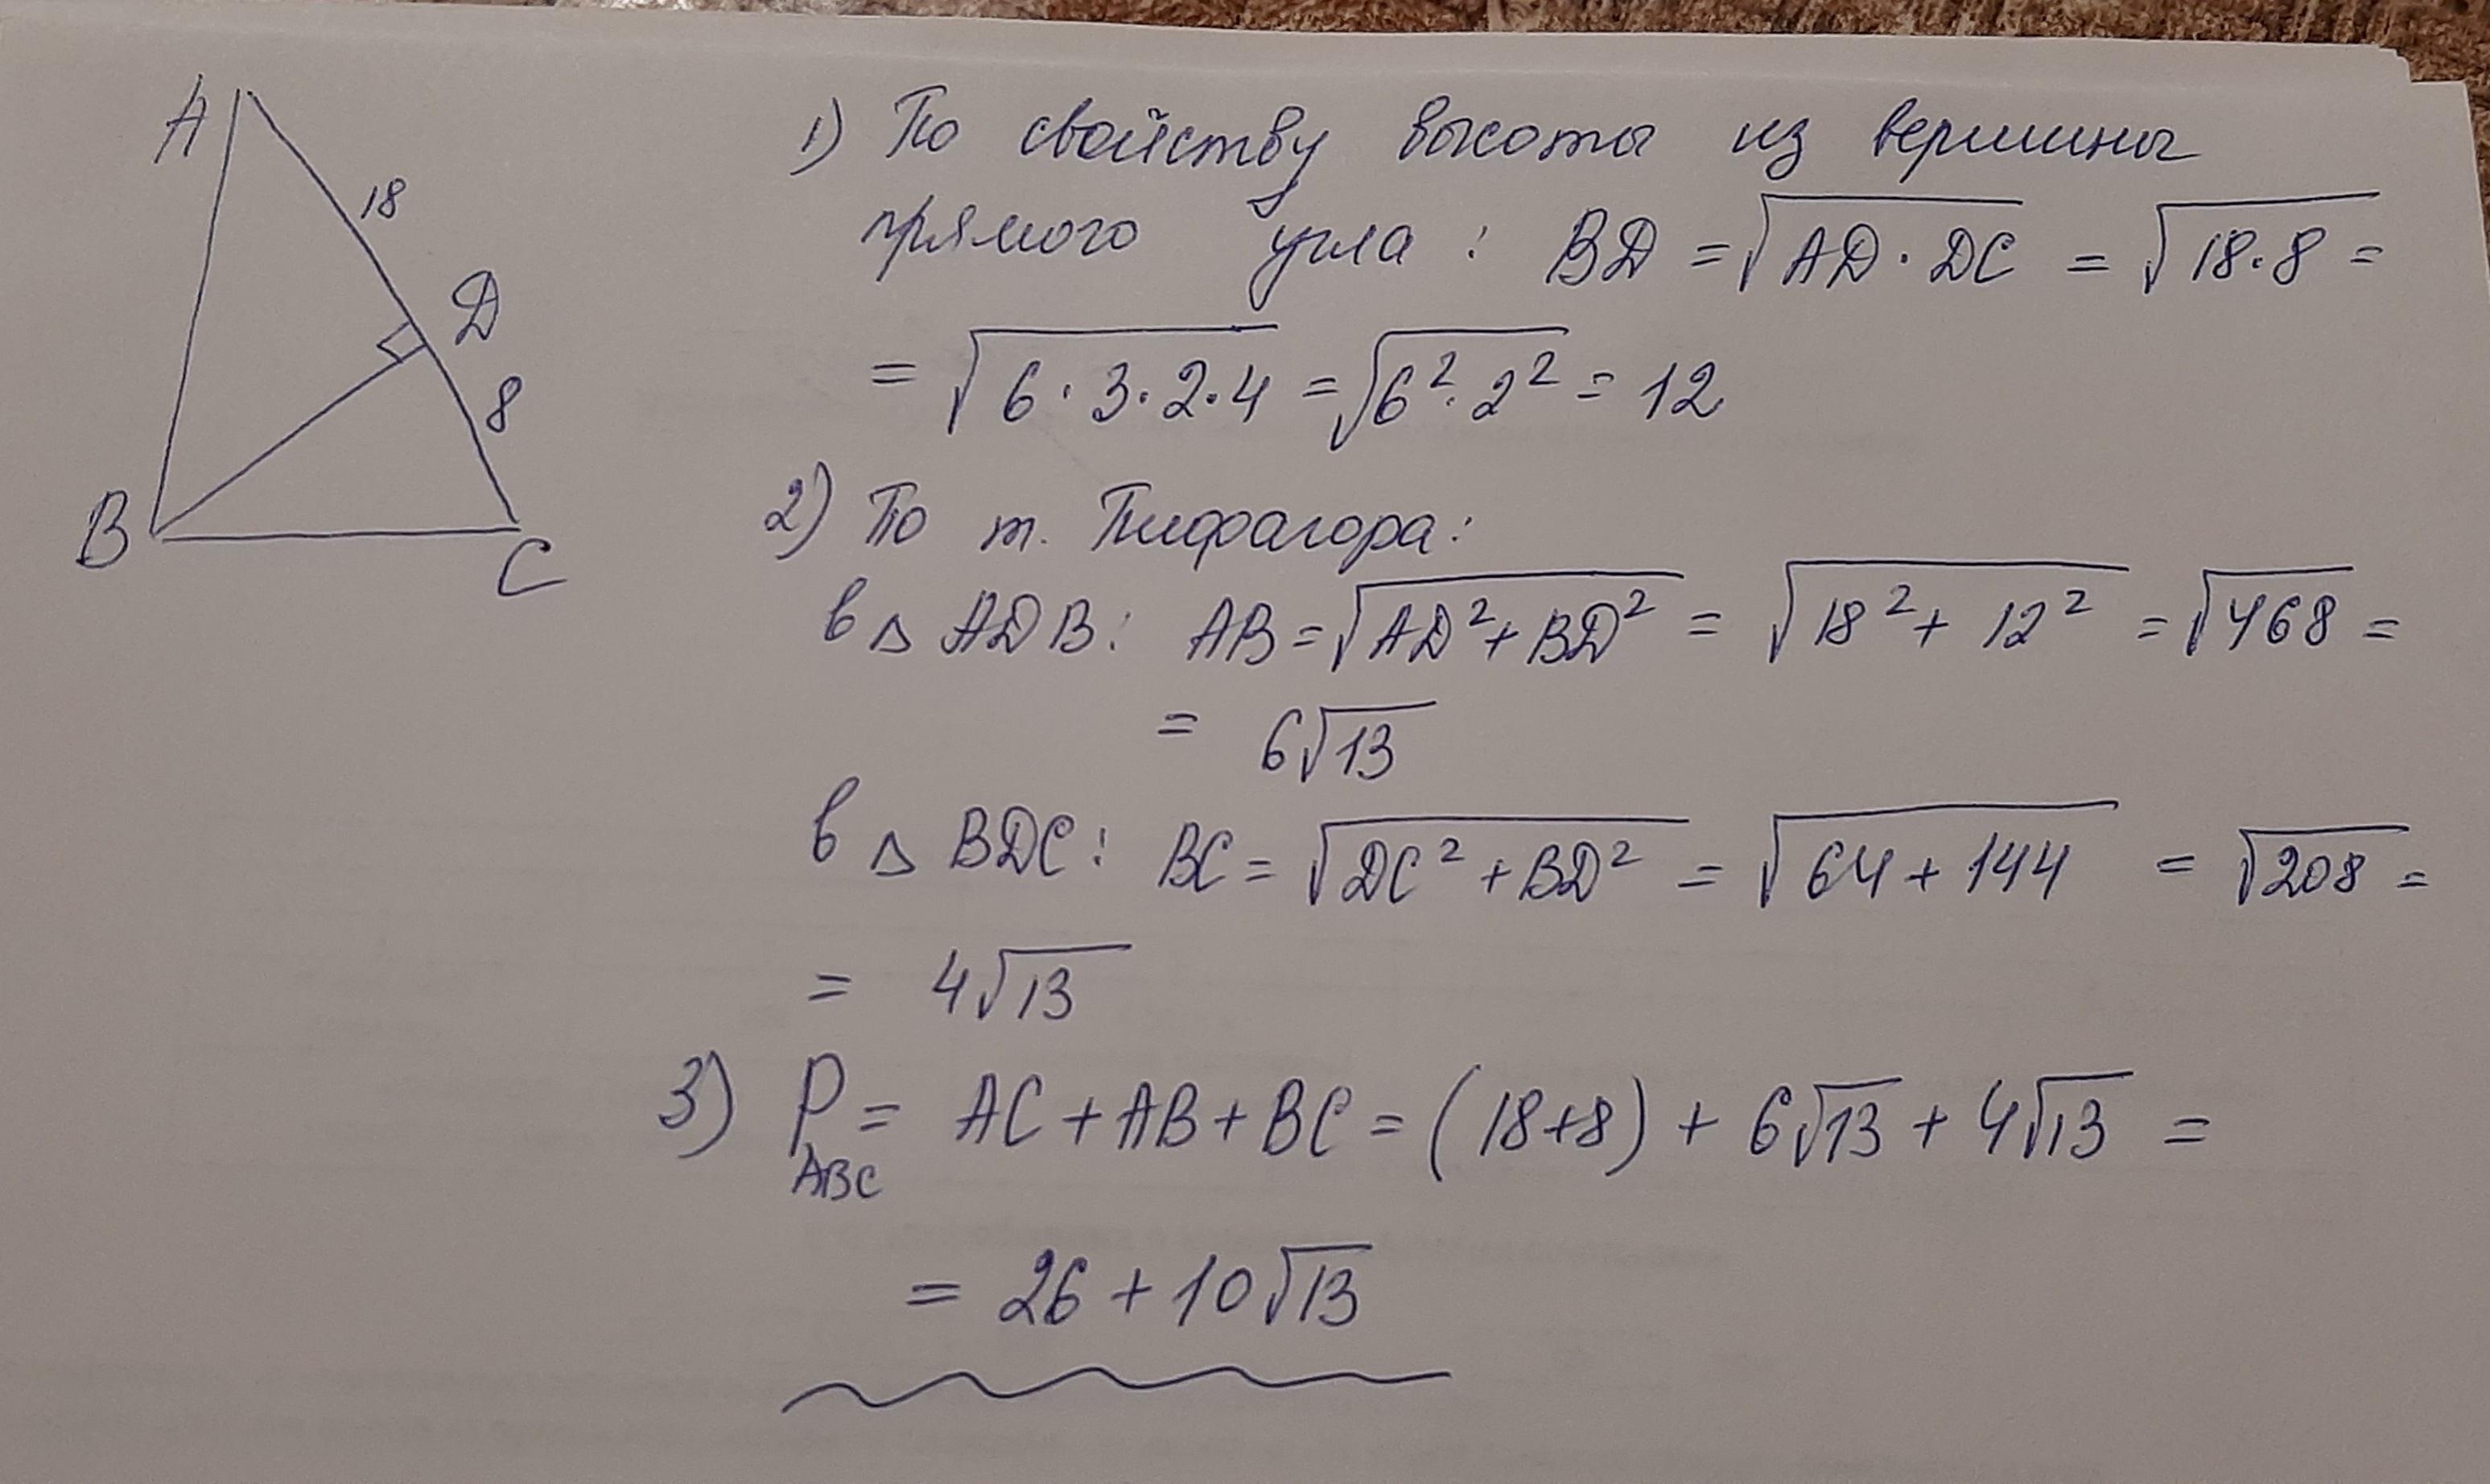 A
18
D
8
B
C
1) По свойству высоты из вершины
прямого угла : BD = √(AD · DC) = √(18·8) =
= √(6 · 3 · 2 · 4) = √(6² · 2²) = 12
2) По т. Пифагора:
в △ ADB: AB = √(AD² + BD²) = √(18² + 12²) = √468 =
= 6√13
в △ BDC: BC = √(DC² + BD²) = √(64 + 144) = √208 =
= 4√13
3) P ABC = AC + AB + BC = (18+8) + 6√13 + 4√13 =
= 26 + 10√13